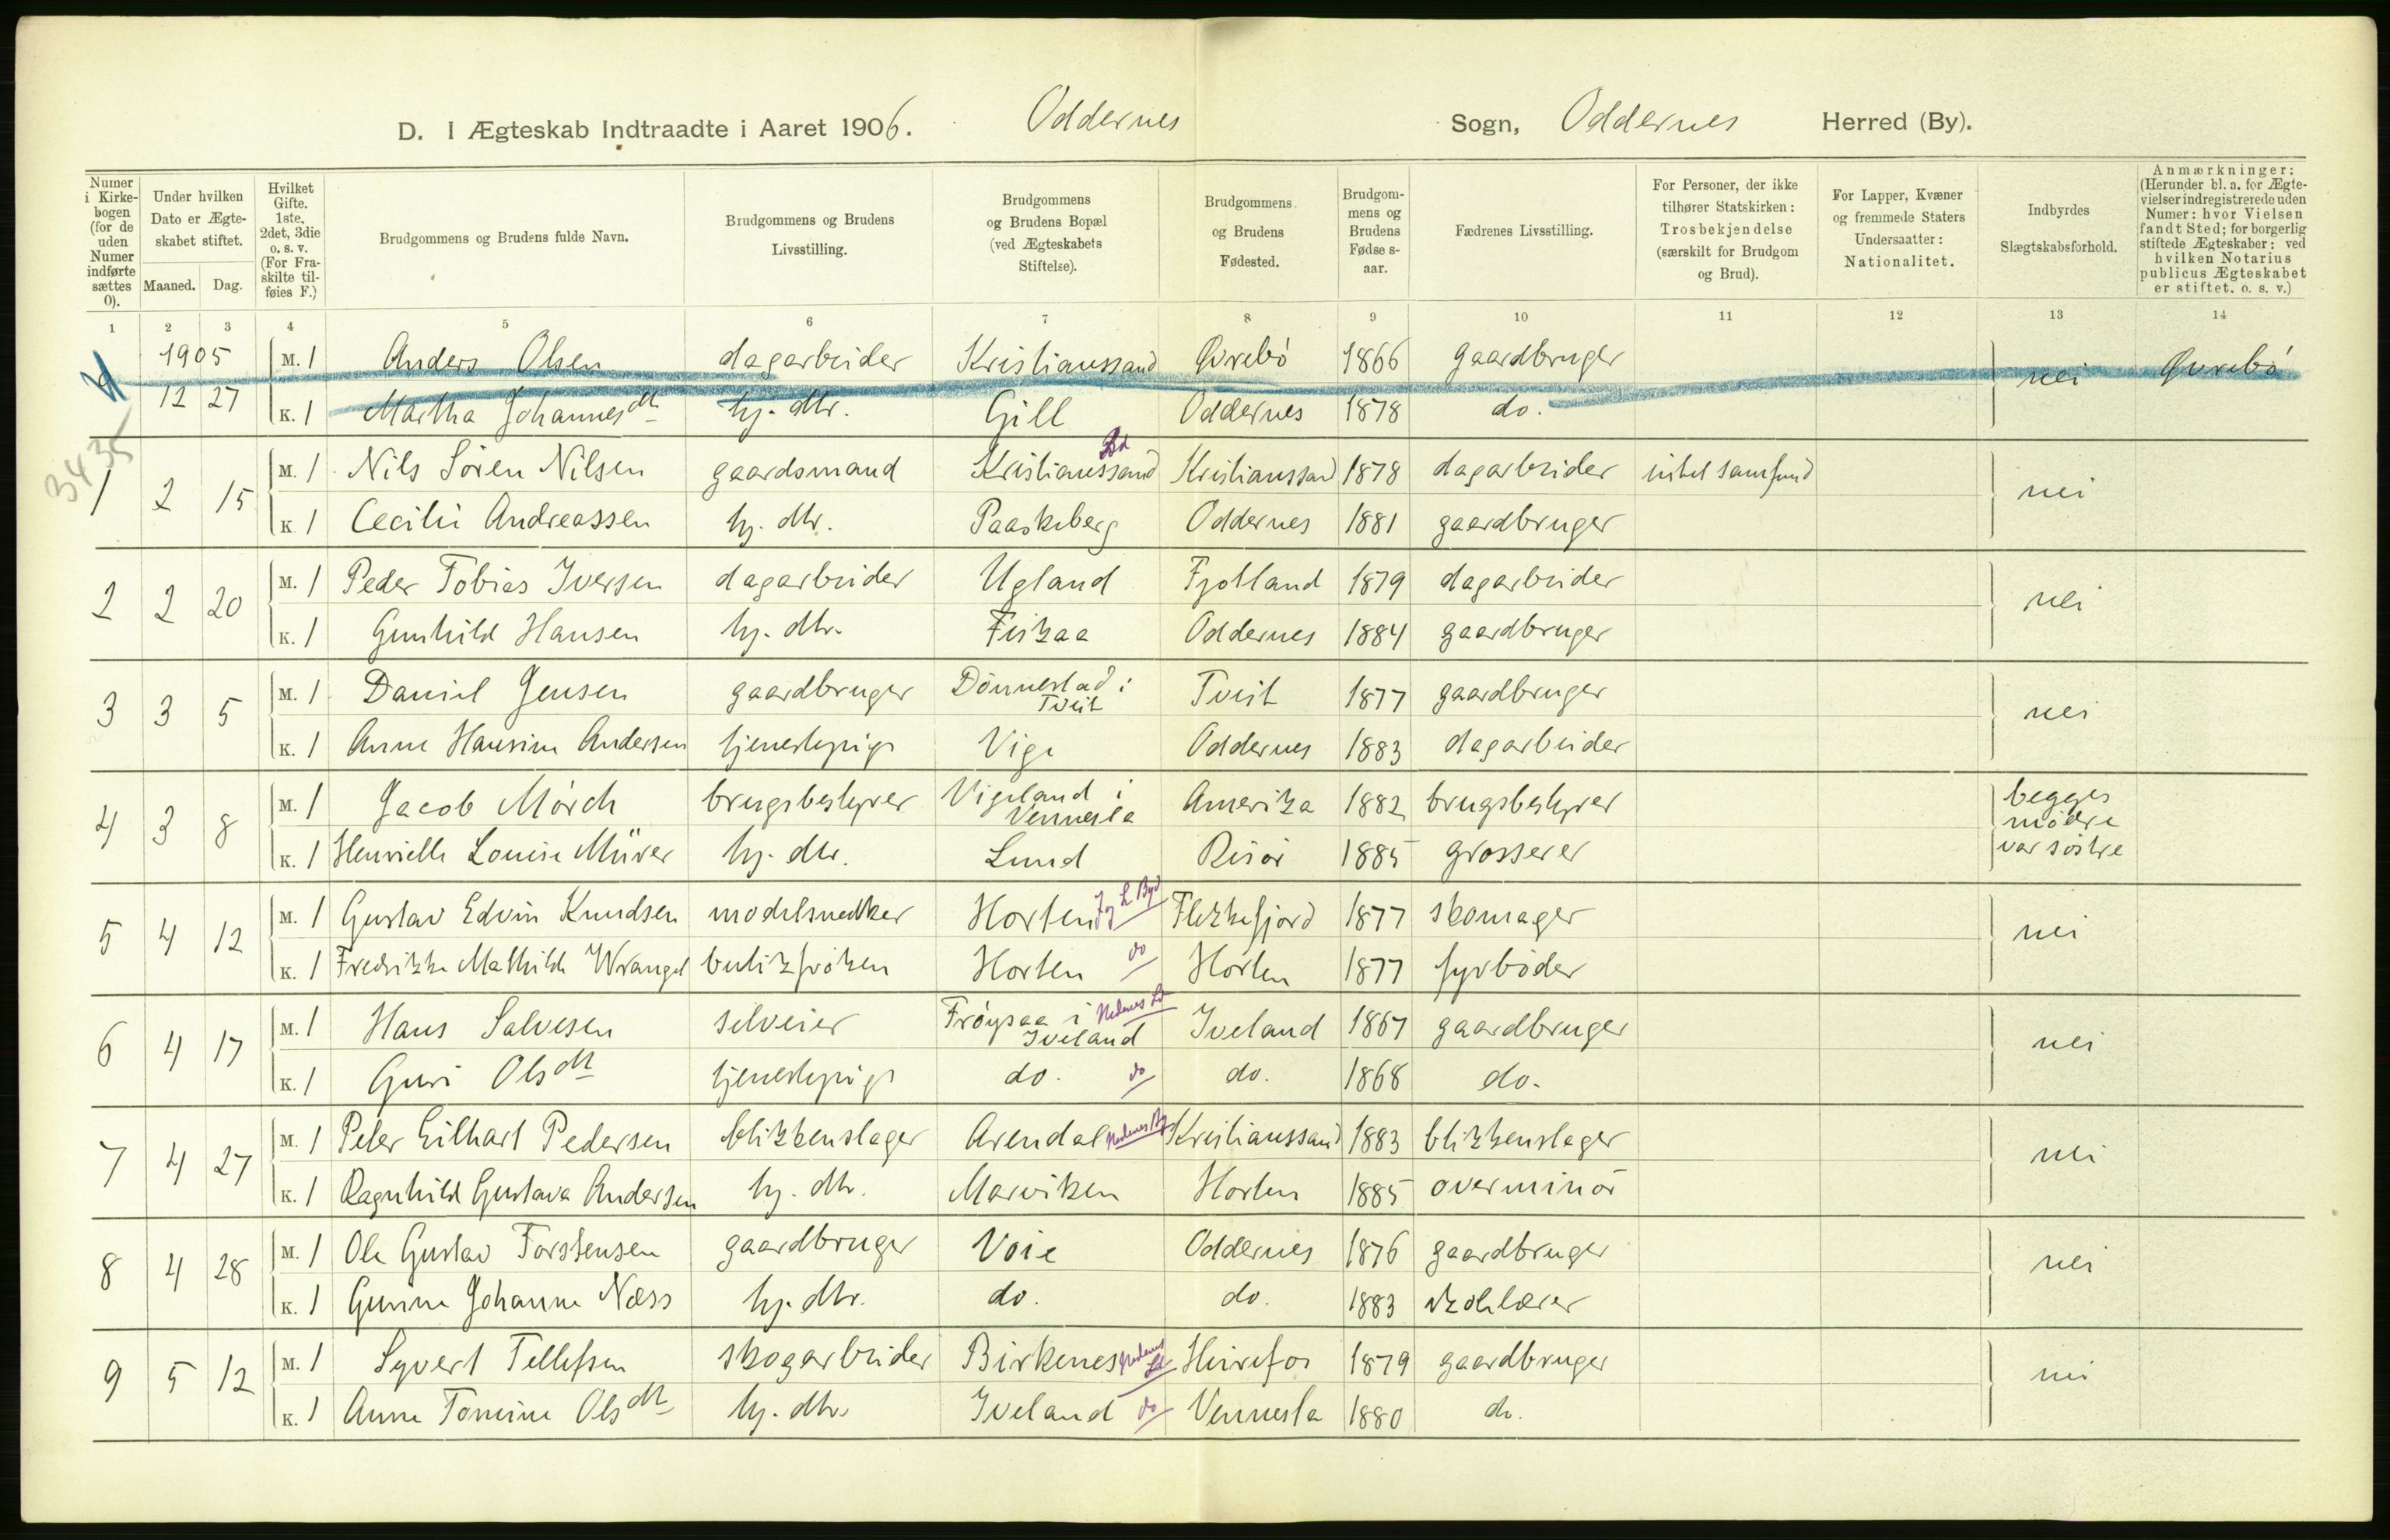 D. I Ægteskab Indtraadte i Aaret 1906. Oddernes Sogn, Oddernes Herred (By).
Numer i Kirke-bogen (for de uden Numer indførte sættes 0).
Under hvilken Dato er Ægte-skabet stiftet.
Maaned. Dag.
Hvilket Gifte. 1ste, 2det, 3die o. s. v. (For Fra-skilte til-føies F.)
Brudgommens og Brudens fulde Navn.
Brudgommens og Brudens Livsstilling.
Brudgommens og Brudens Bopæl (ved Ægteskabets Stiftelse).
Brudgommens og Brudens Fødested.
Brudgom-mens og Brudens Fødse s-aar.
Fædrenes Livsstilling.
For Personer, der ikke tilhører Statskirken: Trosbekjendelse (særskilt for Brudgom og Brud).
For Lapper, Kvæner og fremmede Staters Undersaatter: Nationalitet.
Indbyrdes Slægtskabsforhold.
Anmærkninger: (Herunder bl. a. for Ægte-vielser indregistrerede uden Numer: hvor Vielsen fandt Sted; for borgerlig stiftede Ægteskaber: ved hvilken Notarius publicus Ægteskabet er stiftet. o. s. v.)
1 2 3 4 5 6 7 8 9 10 11 12 13 14
1905 M. 1 Anders Olsen dagarbeider Kristianssand Øvrebö 1866 gaardbruger nei Øvrebö
12 27 K. 1 Martha Johannesdtt hj. dtr. Gill Oddernes 1878 do.
3435
1 2 15 M. 1 Nils Sören Nilsen gaardsmand Kristianssand Kristianssand 1878 dagarbeider nei
K. 1 Cecilie Andreassen hj. dtr. Paaskeberg Oddernes 1881 gaardbruger
2 2 20 M. 1 Peder Tobias Iversen dagarbeider Ugland Fjotland 1879 dagarbeider nei
K. 1 Gunhild Hansen hj. dtr. Fiskaa Oddernes 1884 gaardbruger
3 3 5 M. 1 Daniel Jensen gaardbruger Dönnestad i Tveit Tveit 1877 gaardbruger nei
K. 1 Anne Hansine Andersen tjenestepige Vige Oddernes 1883 dagarbeider
4 3 8 M. 1 Jacob Mörch brugsbestyrer Vigeland i Vennesla Amerika 1882 brugsbestyrer begges mödre var söstre
K. 1 Henriette Louise Mürer hj. dtr. Lund Risör 1885 grosserer
5 4 12 M. 1 Gustav Edvin Knudsen modelsnedker Horten J og L Byd Flekkefjord 1877 skomager nei
K. 1 Fredrikke Mathilde Wrangel butikfröken Horten do Horten 1877 fyrböder
6 4 17 M. 1 Hans Salvesen selveier Fröysaa i Iveland Nedenes Ld Iveland 1867 gaardbruger nei
K. 1 Guri Olsdtt tjenestepige do. do do. 1868 do.
7 4 27 M. 1 Peter Eilhart Pedersen blikkenslager Arendal Nedenes By Kristianssand 1883 blikkenslager nei
K. 1 Ragnhild Gustava Andersen hj. dtr. Marviken Horten 1885 overminör
8 4 28 M. 1 Ole Gustav Torstensen gaardbruger Voie Oddernes 1876 gaardbruger nei
K. 1 Gunine Johanne Næss hj. dtr. do. do. 1883 skolelærer
9 5 12 M. 1 Syvert Tellefsen skogarbeider Birkenes Nedenes Ld Heirefos 1879 gaardbruger nei
K. 1 Anne Tomine Olsdtt hj. dtr. Iveland do Vennesla 1880 do.